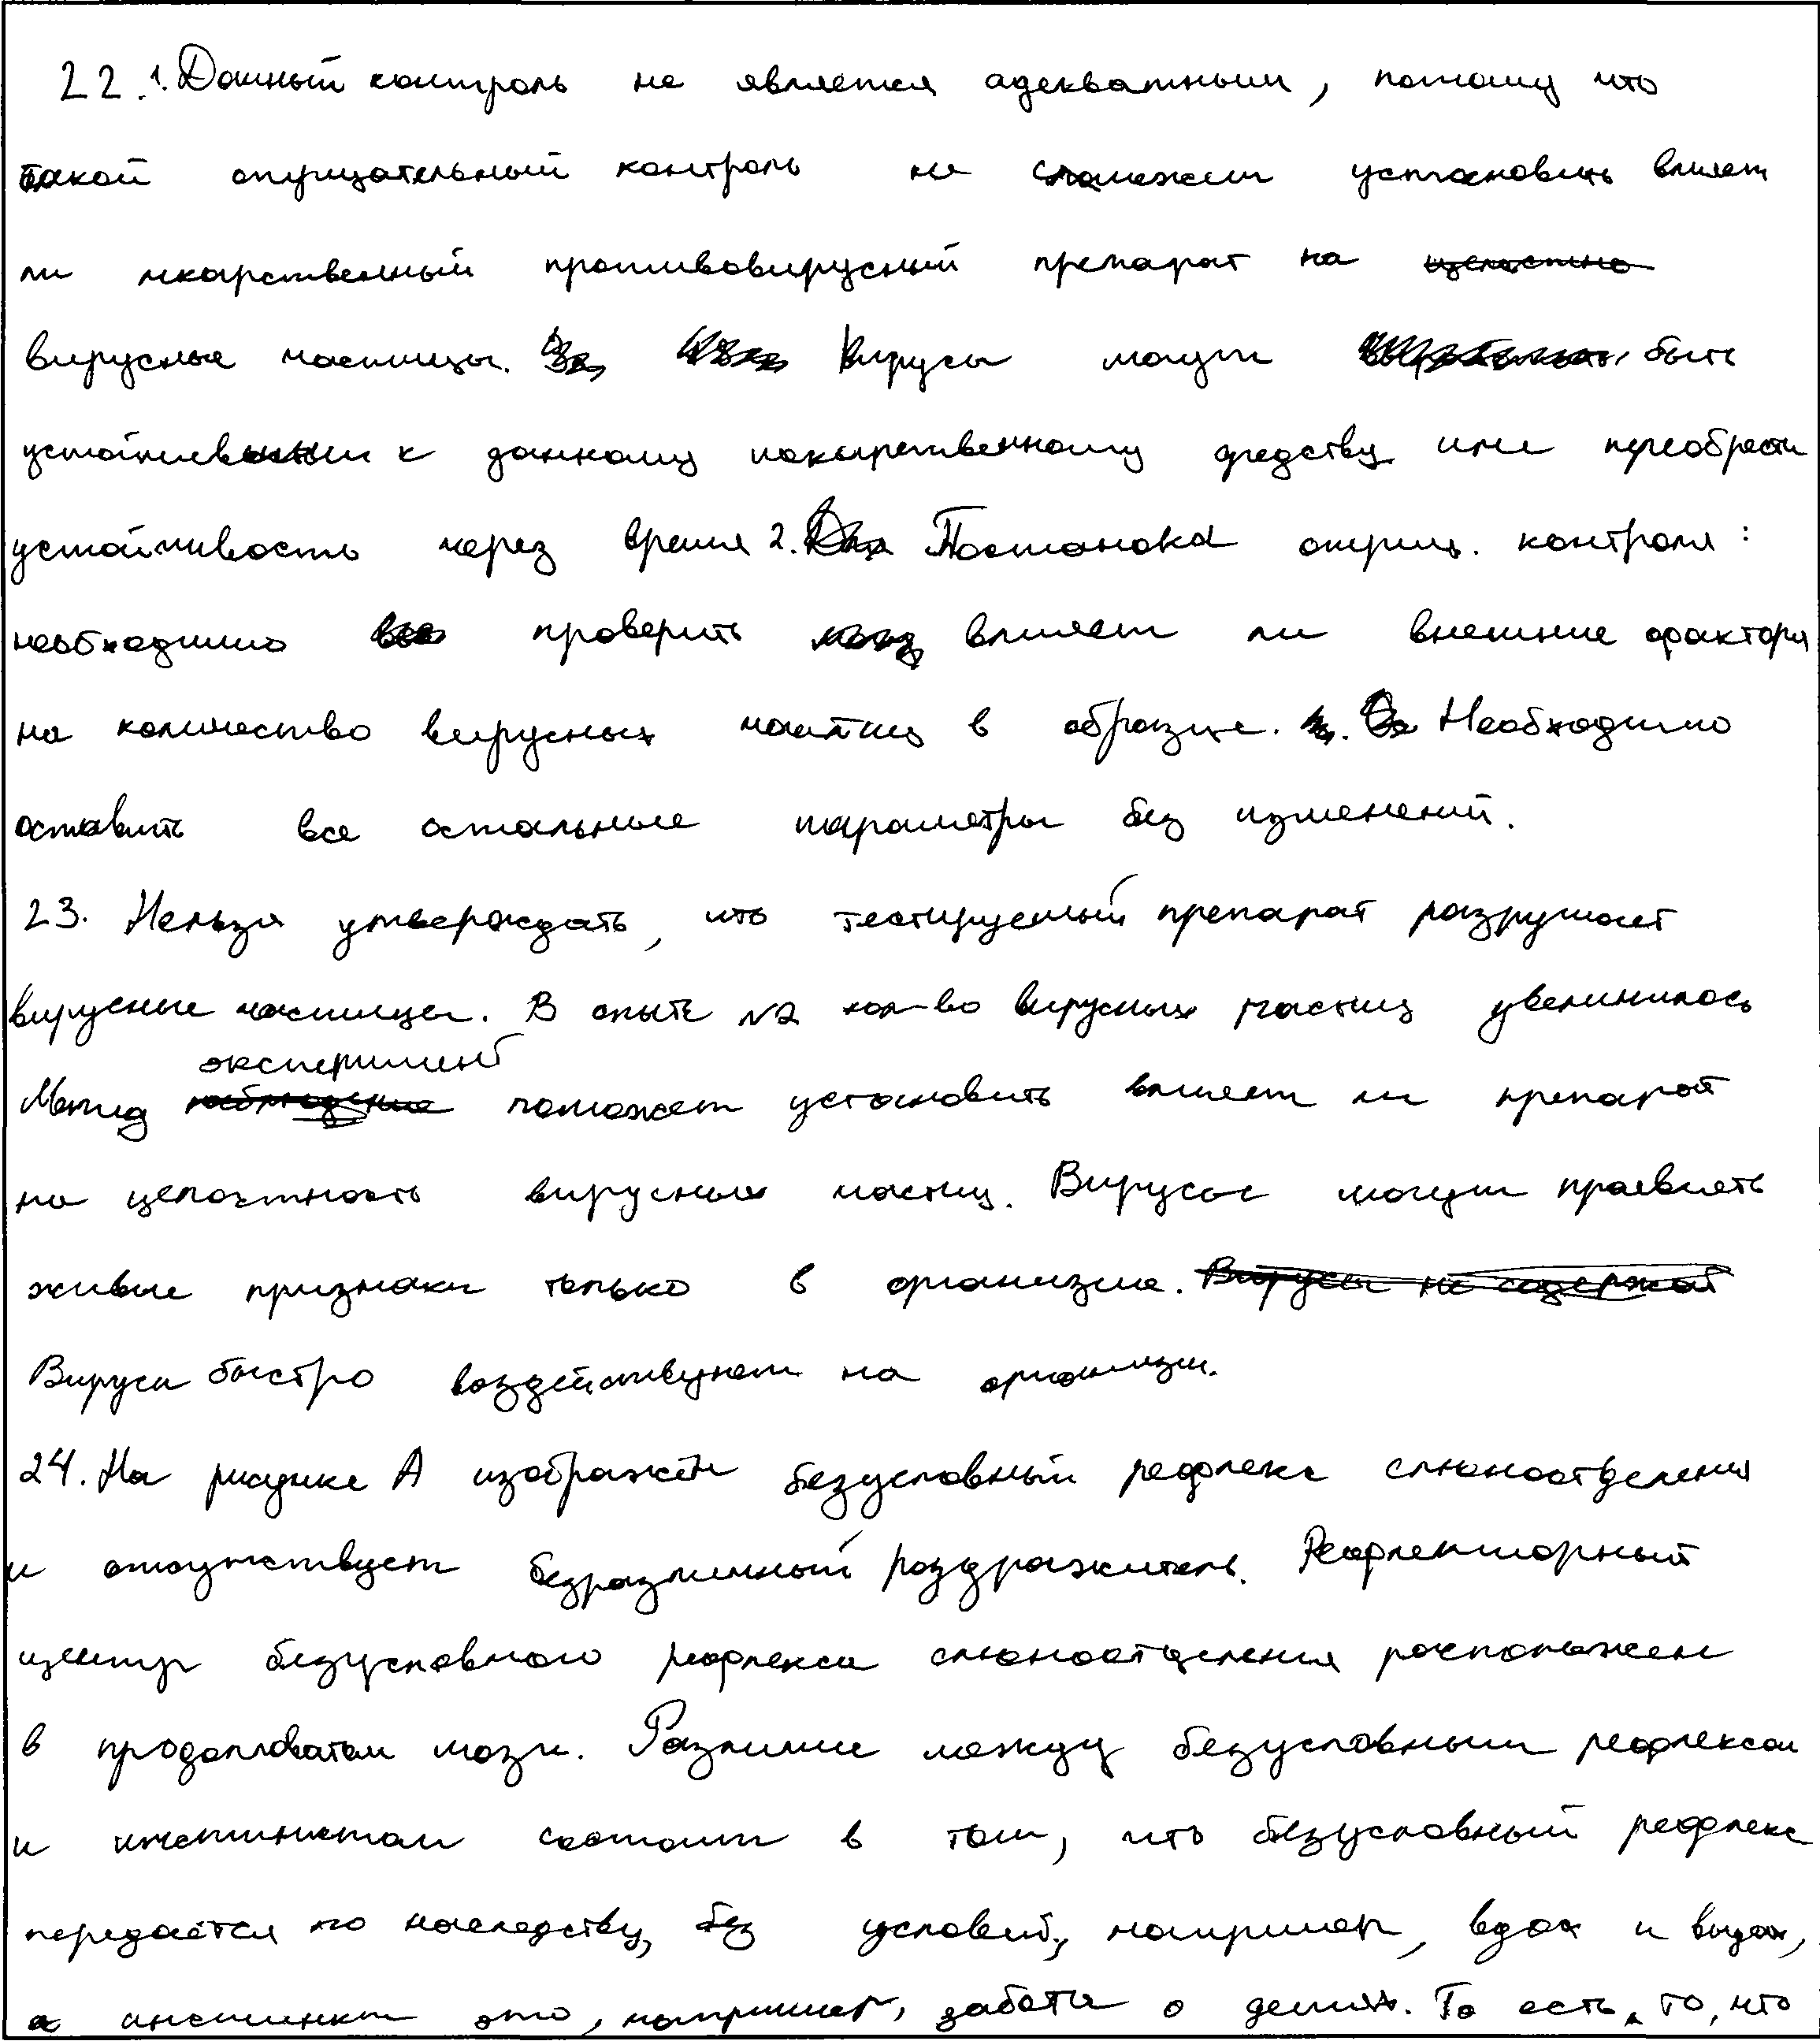 22. 1. Данный контроль не является адекватным, потому что
такой отрицательный контроль не сможет установить влияет
ли лекарственный противовирусный препарат на
вирусные частицы. Вирусы могут быть
устойчивыми к данному лекарственному средству или преобрести
устойчивость через время 2. Постановка отриц. контроля:
необходимо проверить влияет ли внешние фактори
на количество вирусных частиц в образце. Необходимо
оставить все остальные параметры без изменений.
23. Нельзя утверждать, что тестируемый препарат разрушает
вирусные частицы. В опыте №2 кол-во вирусных частиц увеличилось
эксперимент
Метод поможет установить влияет ли препарат
на целостность вирусных частиц. Вирусы могут проявлять
живые признаки только в организме.
Вирусы быстро воздействует на организм.
24. На рисунке А изображён безусловный рефлекс слюноотделения
и отсутствует безразличный раздражитель. Рефлекторный
центр безусловного рефлекса слюноотделения расположен
в продолговатом мозги. Различие между безусловным рефлексом
и инстинктом состоит в том, что безусловный рефлекс
передаётся по наследству, без условий, например, вдох и выдох,
а инстинкт это, например, забота о детях. То есть, то, что